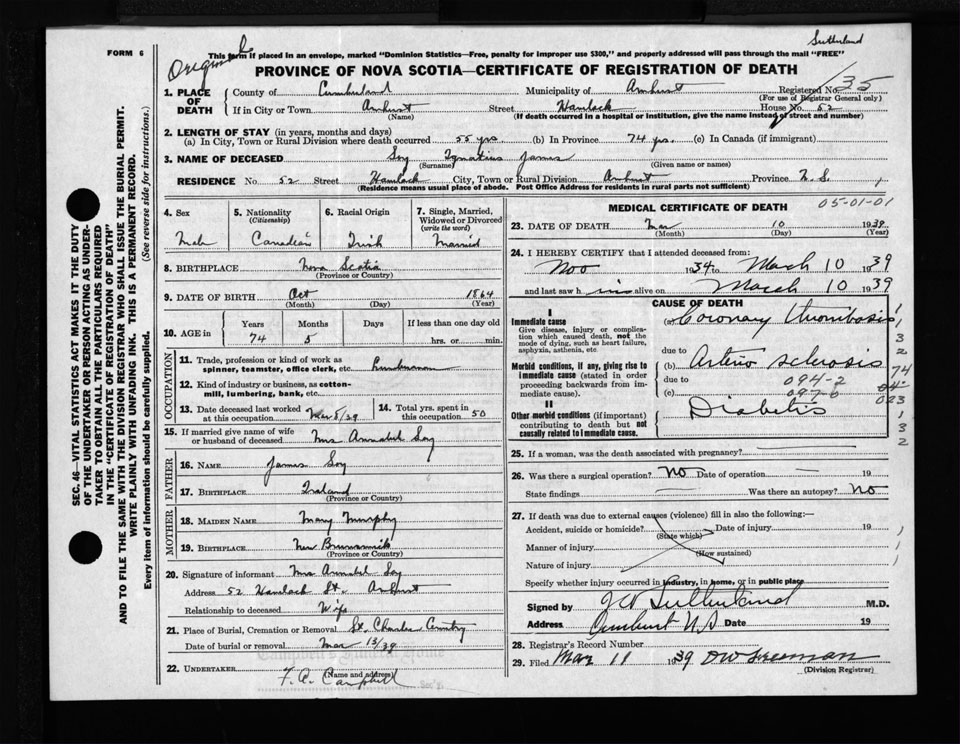 FORM 6
Sutherland
Original
This form if placed in an envelope, marked "Dominion Statistics—Free, penalty for improper use $300," and properly addressed will pass through the mail "FREE"
PROVINCE OF NOVA SCOTIA—CERTIFICATE OF REGISTRATION OF DEATH
135
1. PLACE OF DEATH County of Cumberland Municipality of Amherst Registered No.
(For use of Registrar General only)
If in City or Town Amherst Street Havelock House No. 52
(Name) (If death occurred in a hospital or institution, give the name instead of street and number)
2. LENGTH OF STAY (in years, months and days)
(a) In City, Town or Rural Division where death occurred 55 yrs (b) In Province 74 yrs. (c) In Canada (if immigrant)
3. NAME OF DECEASED Soy Ignatius James
(Surname) (Given name or names)
RESIDENCE No 52 Street Havelock City, Town or Rural Division Amherst Province N.S.
(Residence means usual place of abode. Post Office Address for residents in rural parts not sufficient)
SEC. 46—VITAL STATISTICS ACT MAKES IT THE DUTY
OF THE UNDERTAKER OR PERSON ACTING AS UNDER-
TAKER TO OBTAIN ALL THE PARTICULARS REQUIRED
IN THE "CERTIFICATE OF REGISTRATION OF DEATH"
AND TO FILE THE SAME WITH THE DIVISION REGISTRAR WHO SHALL ISSUE THE BURIAL PERMIT.
WRITE PLAINLY WITH UNFADING INK. THIS IS A PERMANENT RECORD.
Every item of information should be carefully supplied. (See reverse side for instructions.)
4. Sex
Male
5. Nationality
(Citizenship)
Canadian
6. Racial Origin
Irish
7. Single, Married, Widowed or Divorced
(write the word)
Married
8. BIRTHPLACE Nova Scotia
(Province or Country)
9. DATE OF BIRTH Oct 1864
(Month) (Day) (Year)
10. AGE in Years Months Days If less than one day old
74 5 hrs. or min.
OCCUPATION
11. Trade, profession or kind of work as
spinner, teamster, office clerk, etc. Lumberman
12. Kind of industry or business, as cotton-
mill, lumbering, bank, etc.
13. Date deceased last worked at this occupation Mar 5/39
14. Total yrs. spent in this occupation 50
15. If married give name of wife
or husband of deceased Mrs Annabel Soy
FATHER
16. NAME James Soy
17. BIRTHPLACE Ireland
(Province or Country)
MOTHER
18. MAIDEN NAME Mary Murphy
19. BIRTHPLACE New Brunswick
(Province or Country)
20. Signature of informant Mrs Annabel Soy
Address 52 Havelock St. Amherst
Relationship to deceased Wife
21. Place of Burial, Cremation or Removal St. Charles Cemetry
Date of burial or removal Mar 13/39
22. UNDERTAKER F. A. Campbell
(Name and address)
MEDICAL CERTIFICATE OF DEATH
05-01-01
23. DATE OF DEATH Mar 10 1939
(Month) (Day) (Year)
24. I HEREBY CERTIFY that I attended deceased from:
Nov 1934 to March 10 1939
and last saw him alive on March 10 1939
CAUSE OF DEATH
I
Immediate cause
Give disease, injury or complication which caused death, not the mode of dying, such as heart failure, asphyxia, asthenia, etc.
(a) Coronary thrombosis
due to
Morbid conditions, if any, giving rise to immediate cause (stated in order proceeding backwards from immediate cause).
(b) Arterio sclerosis
due to
094-2
(c) 097-0
II
Other morbid conditions (if important) contributing to death but not causally related to immediate cause.
Diabetis
1
1
3
2
74
04-
023
1
3
2
25. If a woman, was the death associated with pregnancy?
26. Was there a surgical operation? No Date of operation 19
State findings Was there an autopsy? No
27. If death was due to external causes (violence) fill in also the following:—
Accident, suicide or homicide? Date of injury 19
(State which)
Manner of injury
(How sustained)
Nature of injury
Specify whether injury occurred in industry, in home, or in public place
Signed by J W Sutherland M.D.
Address Amherst N.S Date 19
28. Registrar's Record Number
29. Filed Mar 11 1939 DW Freeman
(Division Registrar)